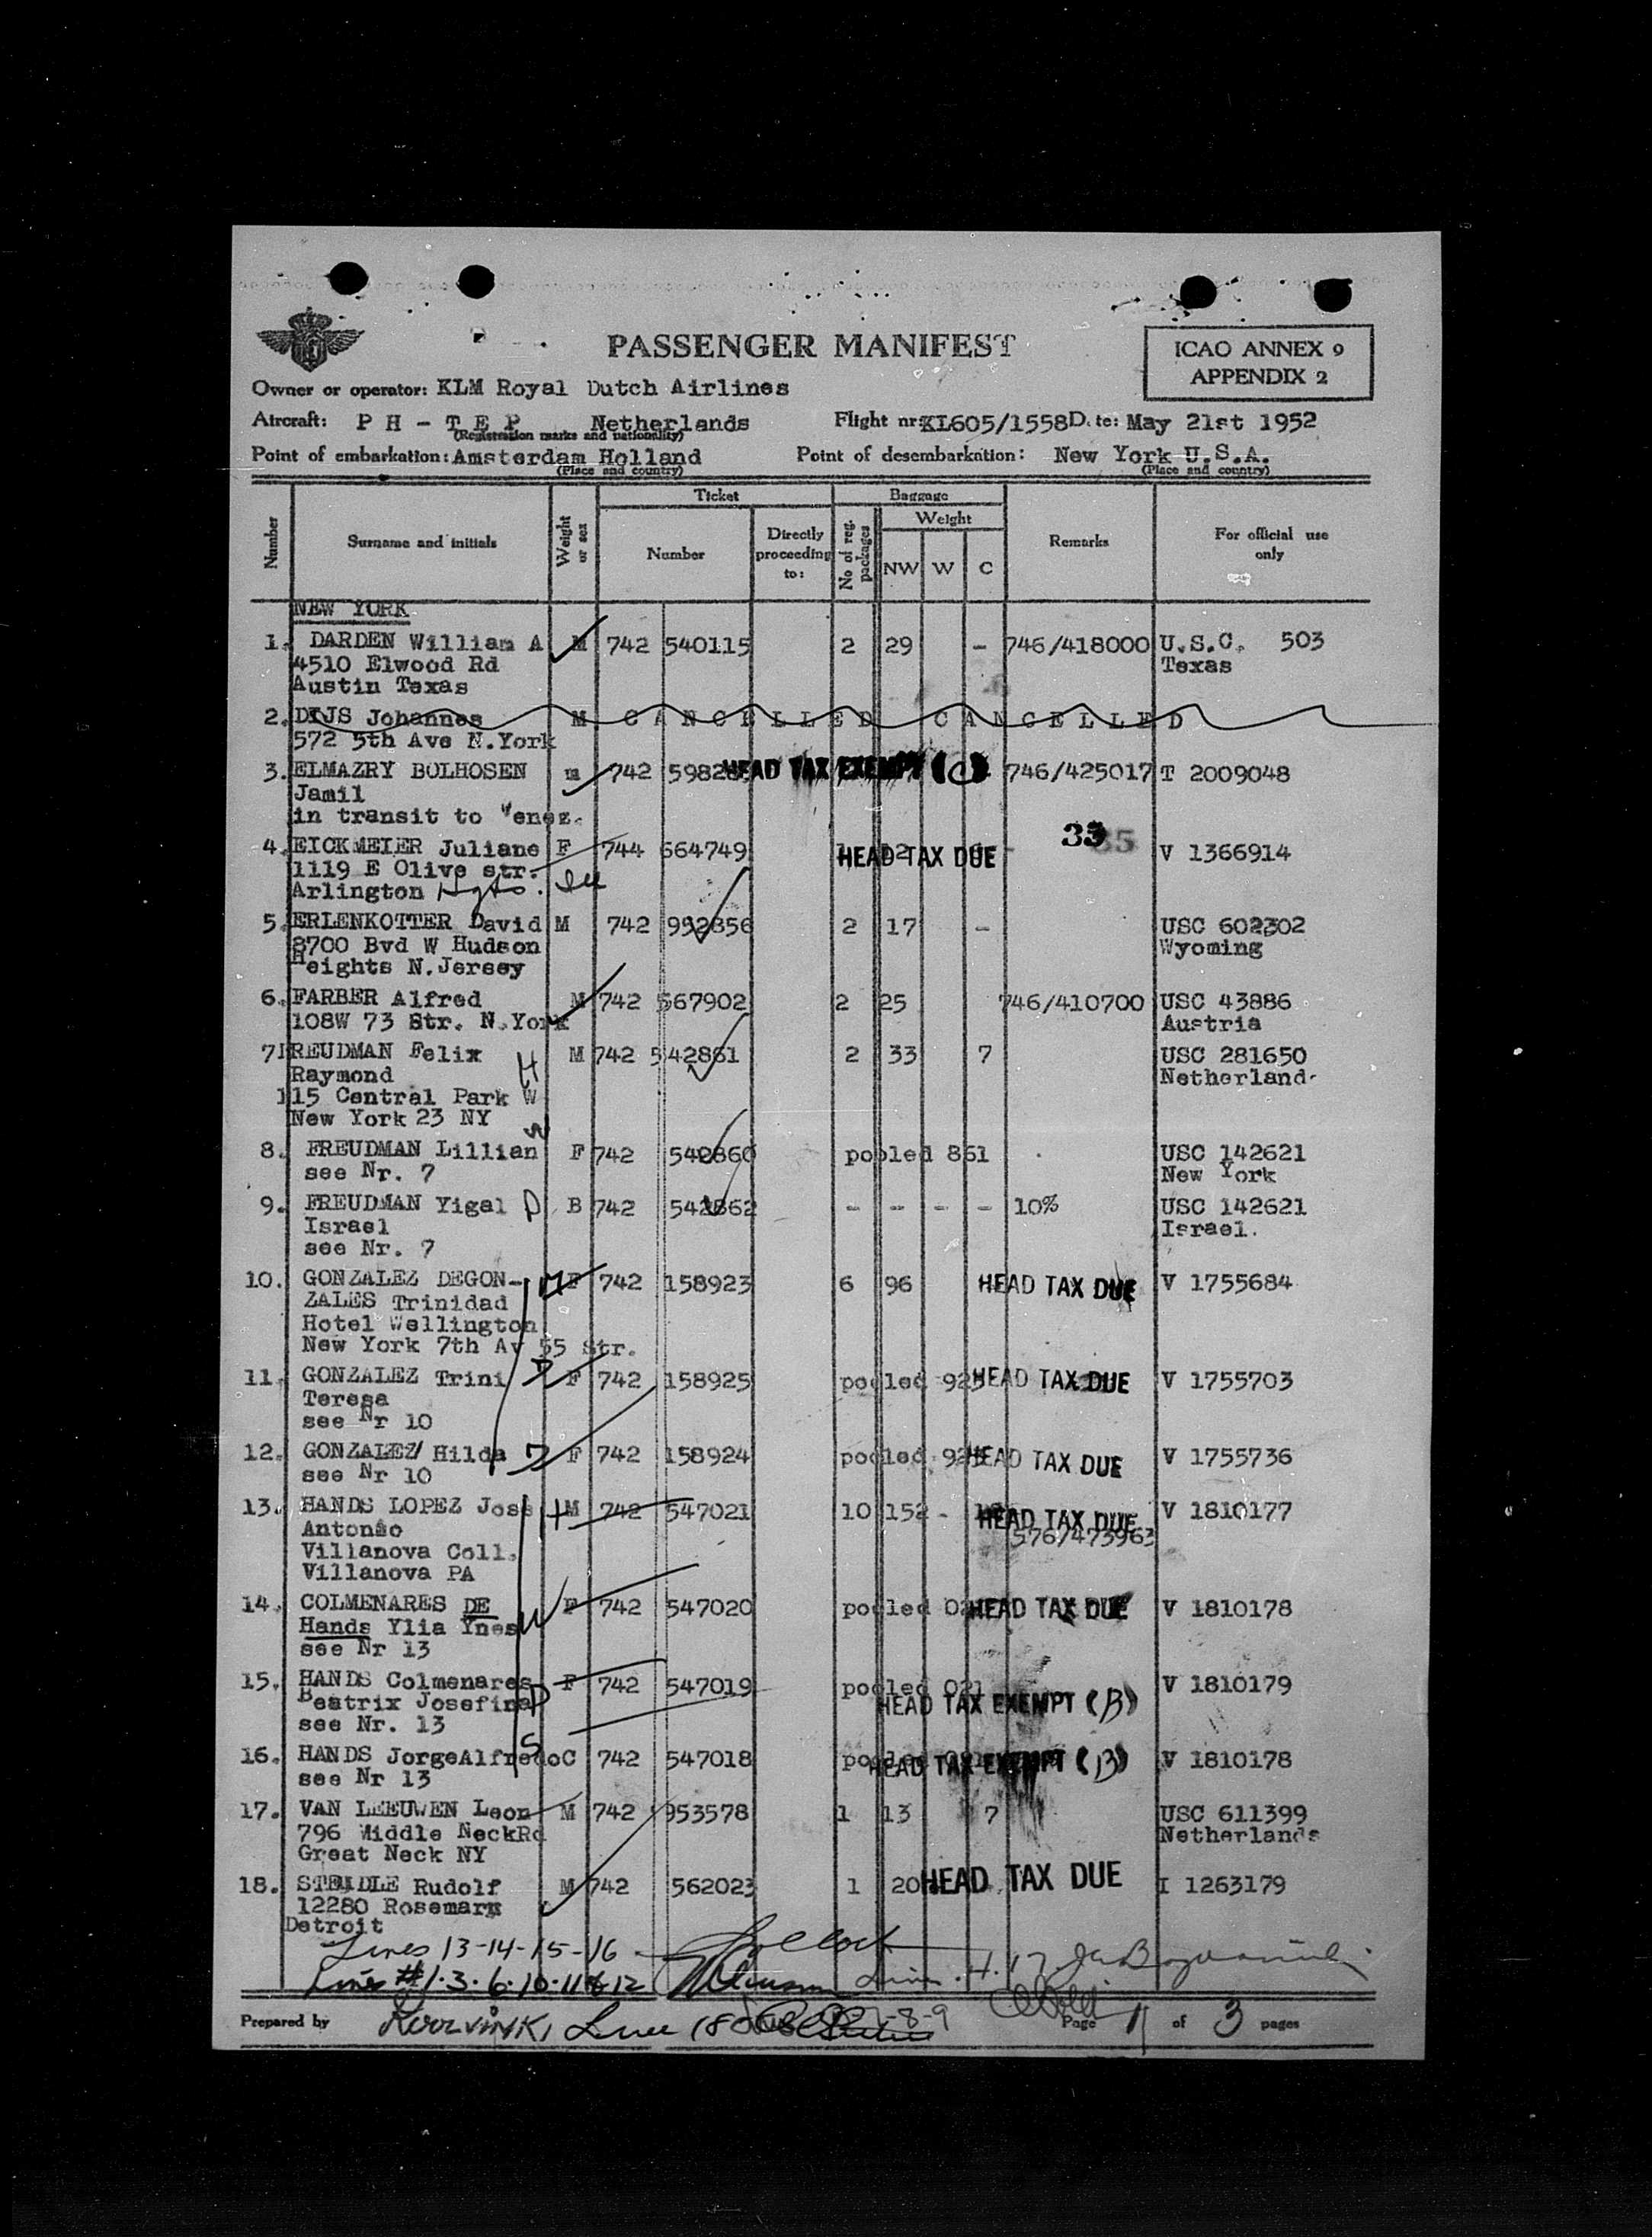 PASSENGER MANIFEST
ICAO ANNEX 9
APPENDIX 2
Owner or operator: KLM Royal Dutch Airlines
Aircraft: P H - T E P Netherlands Flight nr: KL605/1558 Date: May 21st 1952
(Registration marks and nationality)
Point of embarkation: Amsterdam Holland Point of desembarkation: New York U.S.A.
(Place and country) (Place and country)
Number Surname and initials Weight or sex Ticket Number Directly proceeding to: Baggage No of reg. packages Weight NW W C Remarks For official use only
NEW YORK
1. DARDEN William A M 742 540115 2 29 - 746/418000 U.S.C. 503
4510 Elwood Rd Texas
Austin Texas
2. DIJS Johannes M C A N C E L L E D C A N C E L L E D
572 5th Ave N.York
3. ELMAZRY BOLHOSEN m 742 HEAD TAX EXEMPT (C) 746/425017 T 2009048
Jamil
in transit to Venez.
33
4. EICKMEIER Juliane F 744 664749 HEAD TAX DUE - V 1366914
1119 E Olive str.
Arlington Hgts. Ill
5. ERLENKOTTER David M 742 952856 2 17 - USC 602302
8700 Bvd W Hudson Wyoming
Heights N.Jersey
6. FARBER Alfred M 742 567902 2 25 746/410700 USC 43886
108W 73 Str. N.York Austria
7 FREUDMAN Felix H M 742 542861 2 33 7 USC 281650
Raymond Netherland.
115 Central Park W
New York 23 NY
8. FREUDMAN Lillian W F 742 542860 pooled 861 USC 142621
see Nr. 7 New York
9. FREUDMAN Yigal D B 742 542862 - - - - 10% USC 142621
Israel Israel.
see Nr. 7
10. GONZALEZ DEGON- M F 742 158923 6 96 HEAD TAX DUE V 1755684
ZALES Trinidad
Hotel Wellington
New York 7th Av 55 Str.
11. GONZALEZ Trini D F 742 158925 pooled 923 HEAD TAX DUE V 1755703
Teresa
see Nr 10
12. GONZALEZ Hilda D F 742 158924 pooled 923 HEAD TAX DUE V 1755736
see Nr 10
13. HANDS LOPEZ Jose H M 742 547021 10 152 - HEAD TAX DUE V 1810177
Antonio 576/473963
Villanova Coll.
Villanova PA
14. COLMENARES DE W F 742 547020 pooled HEAD TAX DUE V 1810178
Hands Ylia Ynes
see Nr 13
15. HANDS Colmenares F 742 547019 pooled 021 V 1810179
Beatrix Josefina D HEAD TAX EXEMPT (B)
see Nr. 13
16. HANDS JorgeAlfredo S C 742 547018 pooled HEAD TAX EXEMPT (B) V 1810178
see Nr 13
17. VAN LEEUWEN Leon M 742 953578 1 13 7 USC 611399
796 Middle NeckRd Netherlands
Great Neck NY
18. STEIDLE Rudolf M 742 562023 1 20 HEAD TAX DUE I 1263179
12280 Rosemary
Detroit
Lines 13-14-15-16
Lines #1.3.6.10.11&12
Prepared by Line 18 7-8-9 Page 1 of 3 pages